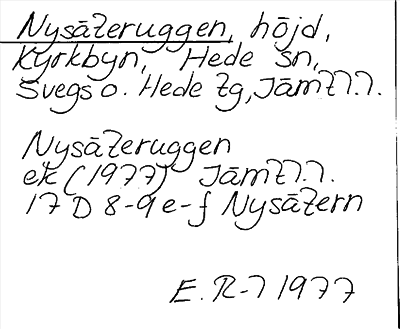 Nysäteruggen, höjd,
Kyrkbyn, Hede sn,
Svegs o. Hede tg, Jämtl.l.
Nysäteruggen
ek (1977) Jämtl.l.
17 D 8-9 e-f Nysätern
E. R-l 1977